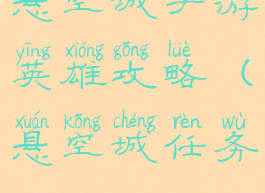 悬空城手游
yīng xióng gōng lüè
英雄攻略（
xuán kōng chéng rèn wù
悬空城任务